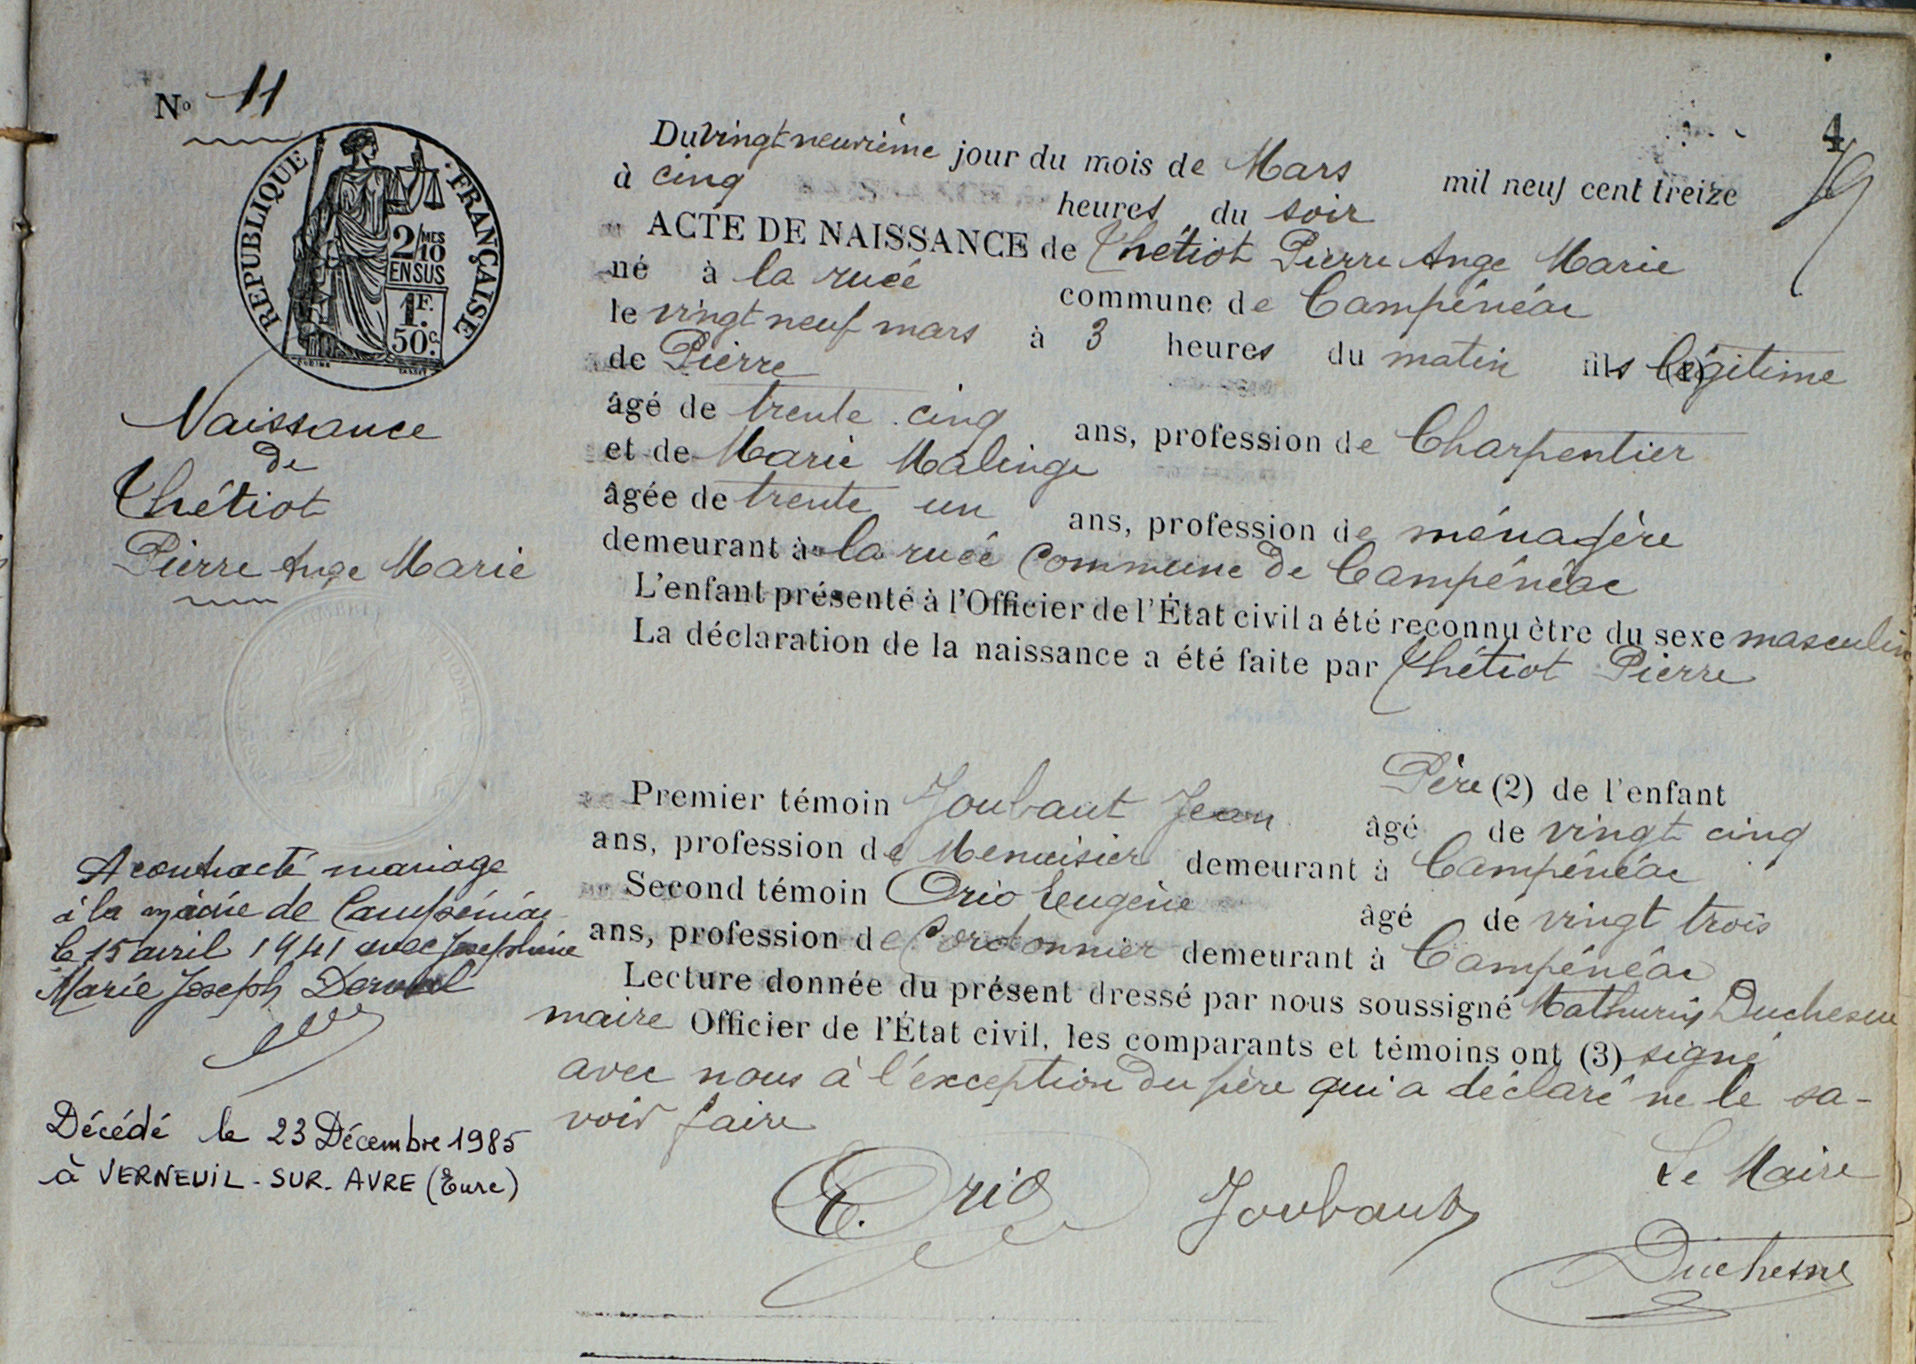 N° 11
4
REPUBLIQUE FRANÇAISE
2/MES
10
EN SUS
1F.
50c.
Naissance
de
Thétiot
Pierre Ange Marie
A contracté mariage
à la mairie de Campénéac
le 15 avril 1941 avec Joséphine
Marie Joseph
Décédé le 23 Décembre 1985
à VERNEUIL-SUR-AVRE (Eure)
Du vingt neuvième jour du mois de Mars mil neuf cent treize
à cinq heures du soir
ACTE DE NAISSANCE de Thétiot Pierre Ange Marie
né à la rueé commune de Campénéac
le vingt neuf mars à 3 heures du matin fils (1) légitime
de Pierre
âgé de trente cinq ans, profession de Charpentier
et de Marie Malinge
âgée de trente un ans, profession de ménagère
demeurant à la rueé commune de Campénéac
L'enfant présenté à l'Officier de l'État civil a été reconnu être du sexe masculin
La déclaration de la naissance a été faite par Thétiot Pierre
Père (2) de l'enfant
Premier témoin Joubaut Jean âgé de vingt cinq
ans, profession de Menuisier demeurant à Campénéac
Second témoin Orio Eugène âgé de vingt trois
ans, profession de Cordonnier demeurant à Campénéac
Lecture donnée du présent dressé par nous soussigné Mathurin Duchesne
maire Officier de l'État civil, les comparants et témoins ont (3) signé
avec nous à l'exception du père qui a déclaré ne le sa-
voir faire
Le Maire
E. Orio Joubaut Duchesne